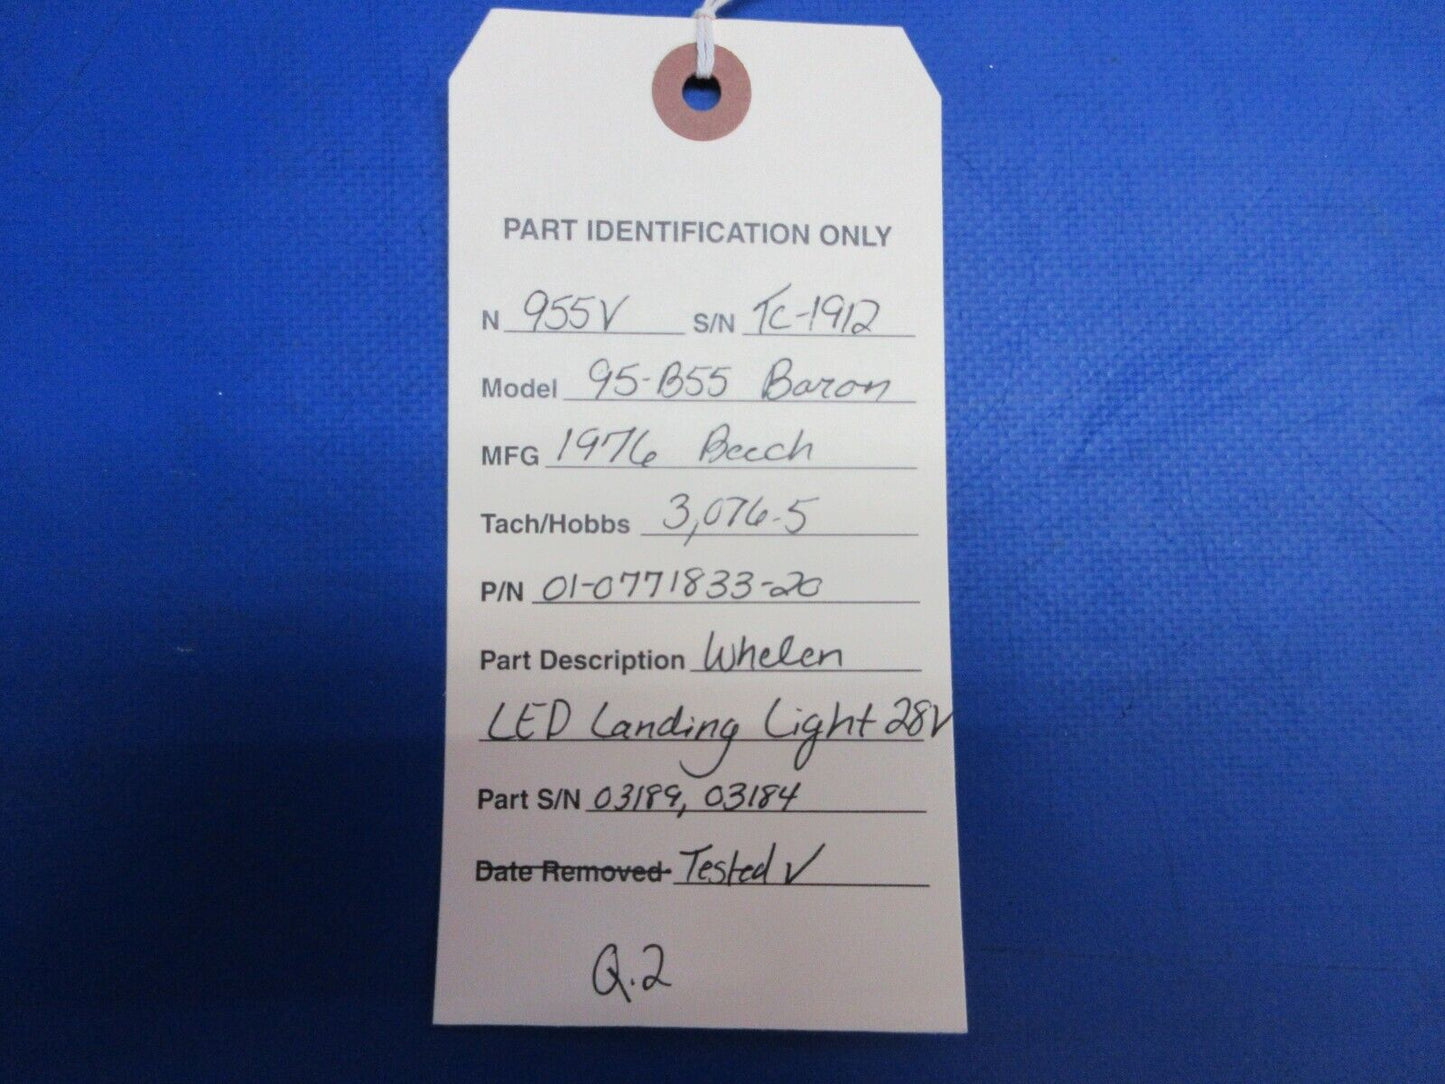 PART IDENTIFICATION ONLY
N 955V S/N TC-1912
Model 95-B55 Baron
MFG 1976 Beech
Tach/Hobbs 3,076.5
P/N 01-0771833-20
Part Description Whelen
LED Landing Light 28V
Part S/N 03189, 03184
Date Removed Tested ✓
Q.2